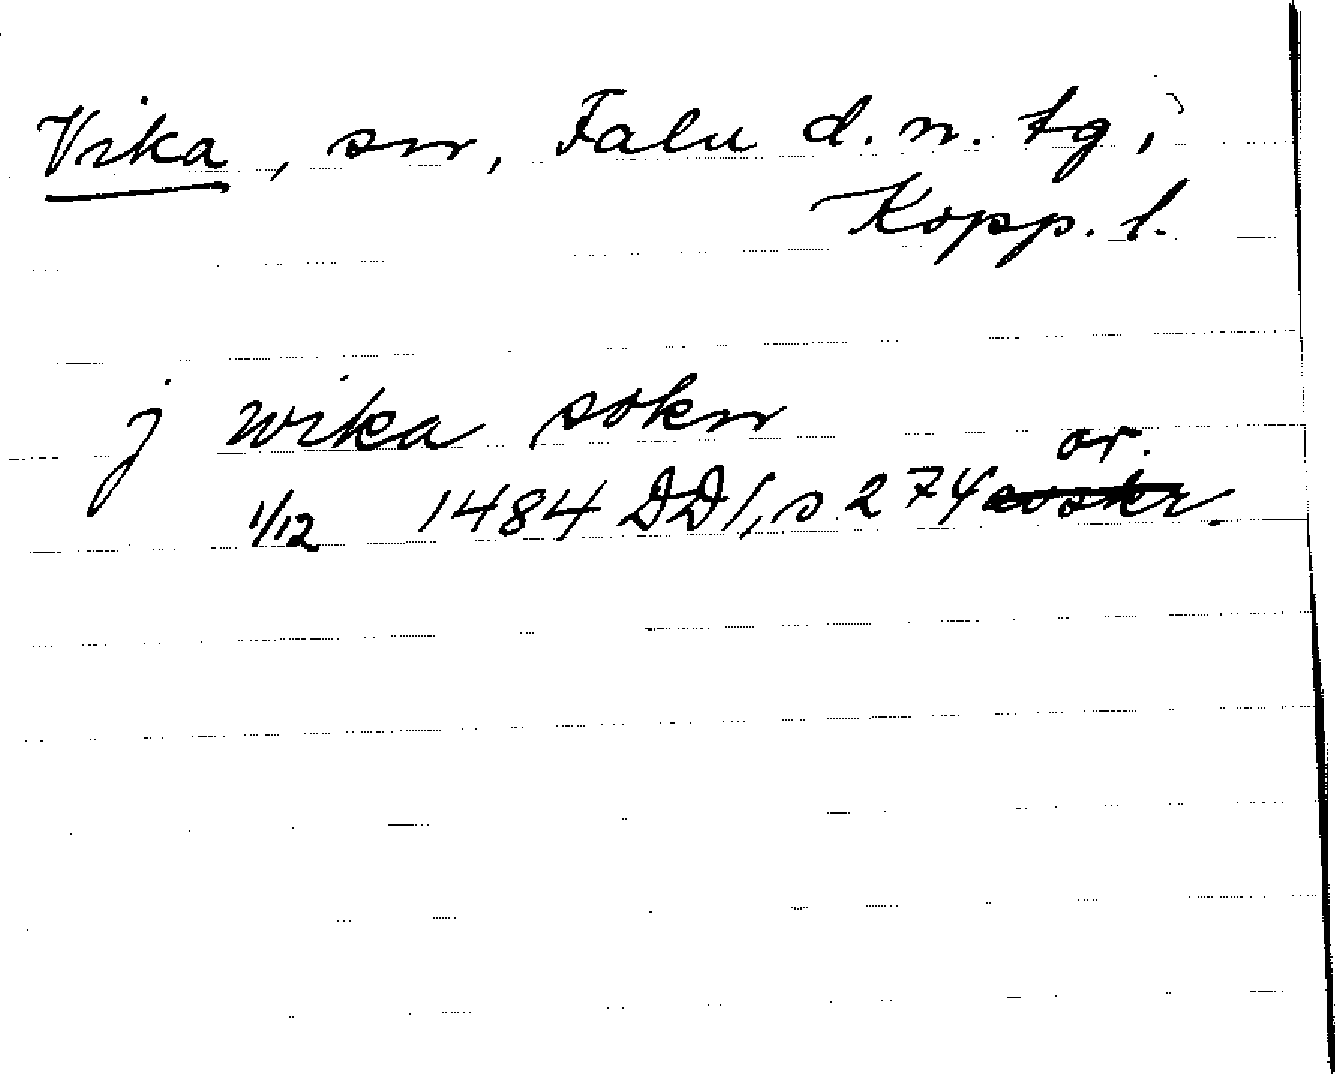 Vika, sn, Falu d.n. tg,
Kopp. l.
j wika sokn
1/12 1484 DD 1, s 274 or.